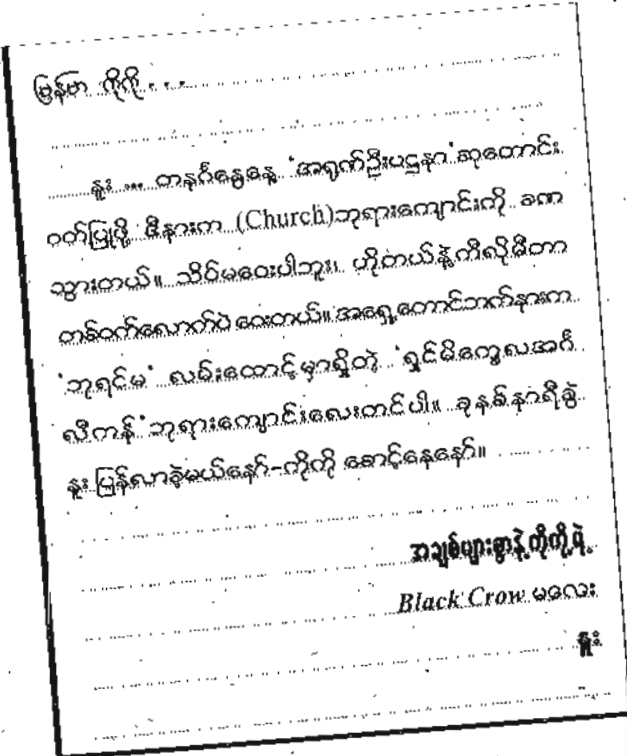 မြန်မာ ကိုကို . . .
နူး ... တနင်္ဂနွေနေ့ 'အရုဏ်ဦးပဌနာ' ဆုတောင်း
ဝတ်ပြုဖို့ ဇီနားက (Church) ဘုရားကျောင်းကို ခဏ
သွားတယ်။ သိပ်မဝေးပါဘူး၊ ဟိုတယ်နဲ့ကီလိုမီတာ
တစ်ဝက်လောက်ပဲ ဝေးတယ်။ အရှေ့တောင်ဘက်နားက
'ဘုရင်မ' လမ်းထောင့်မှာရှိတဲ့ 'ရှင်မိကွေလအင်္ဂ
လီကန်' ဘုရားကျောင်းလေးတင်ပါ။ ခုနစ်နာရီခွဲ
နူး ပြန်လာခဲ့မယ်နော်-ကိုကို စောင့်နေနော်။
အချစ်များစွာနဲ့ ကိုကို့ရဲ့
Black Crow မလေး
နူး